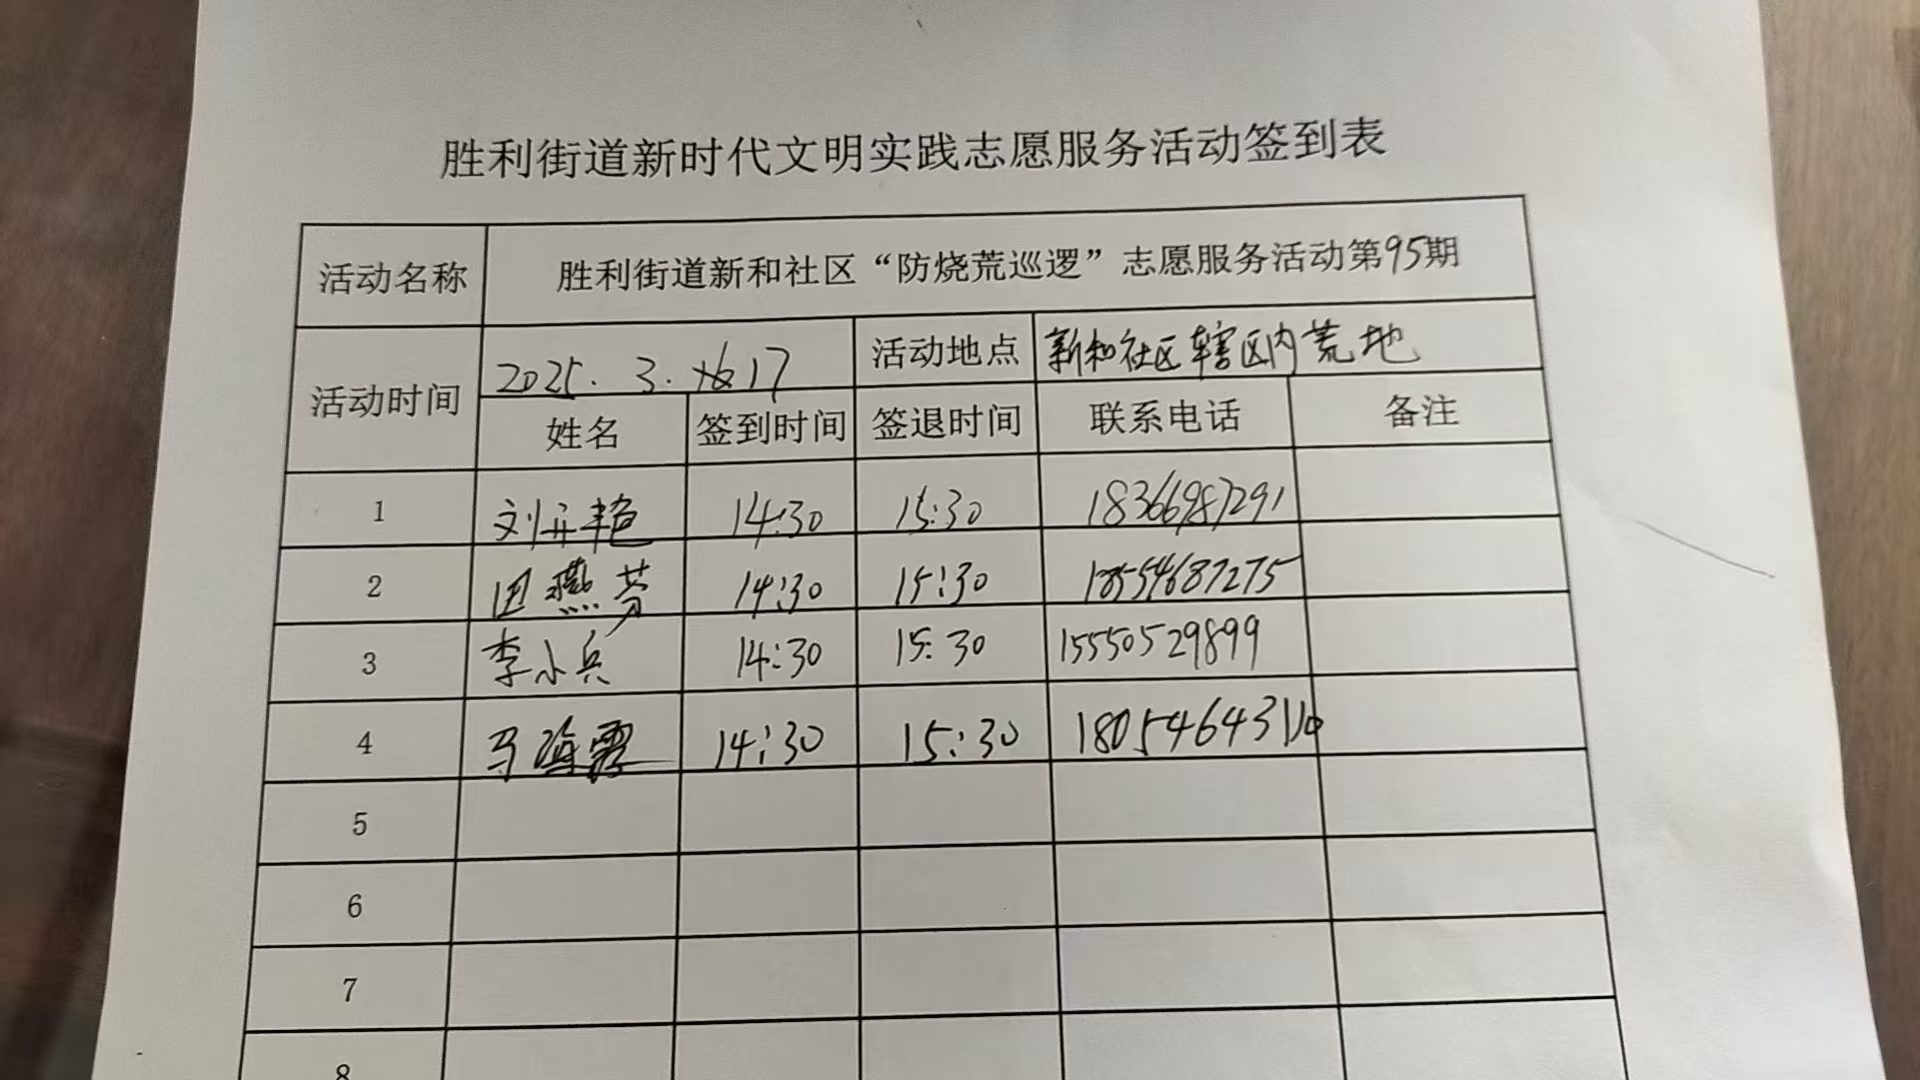 胜利街道新时代文明实践志愿服务活动签到表
活动名称 胜利街道新和社区“防烧荒巡逻”志愿服务活动第95期
活动时间 2025.3.17 活动地点 新和社区辖区内荒地
姓名 签到时间 签退时间 联系电话 备注
1 刘开艳 14:30 15:30 18366987291
2 田燕芳 14:30 15:30 18554687275
3 李小兵 14:30 15:30 15550529899
4 马海霞 14:30 15:30
5
6
7
8